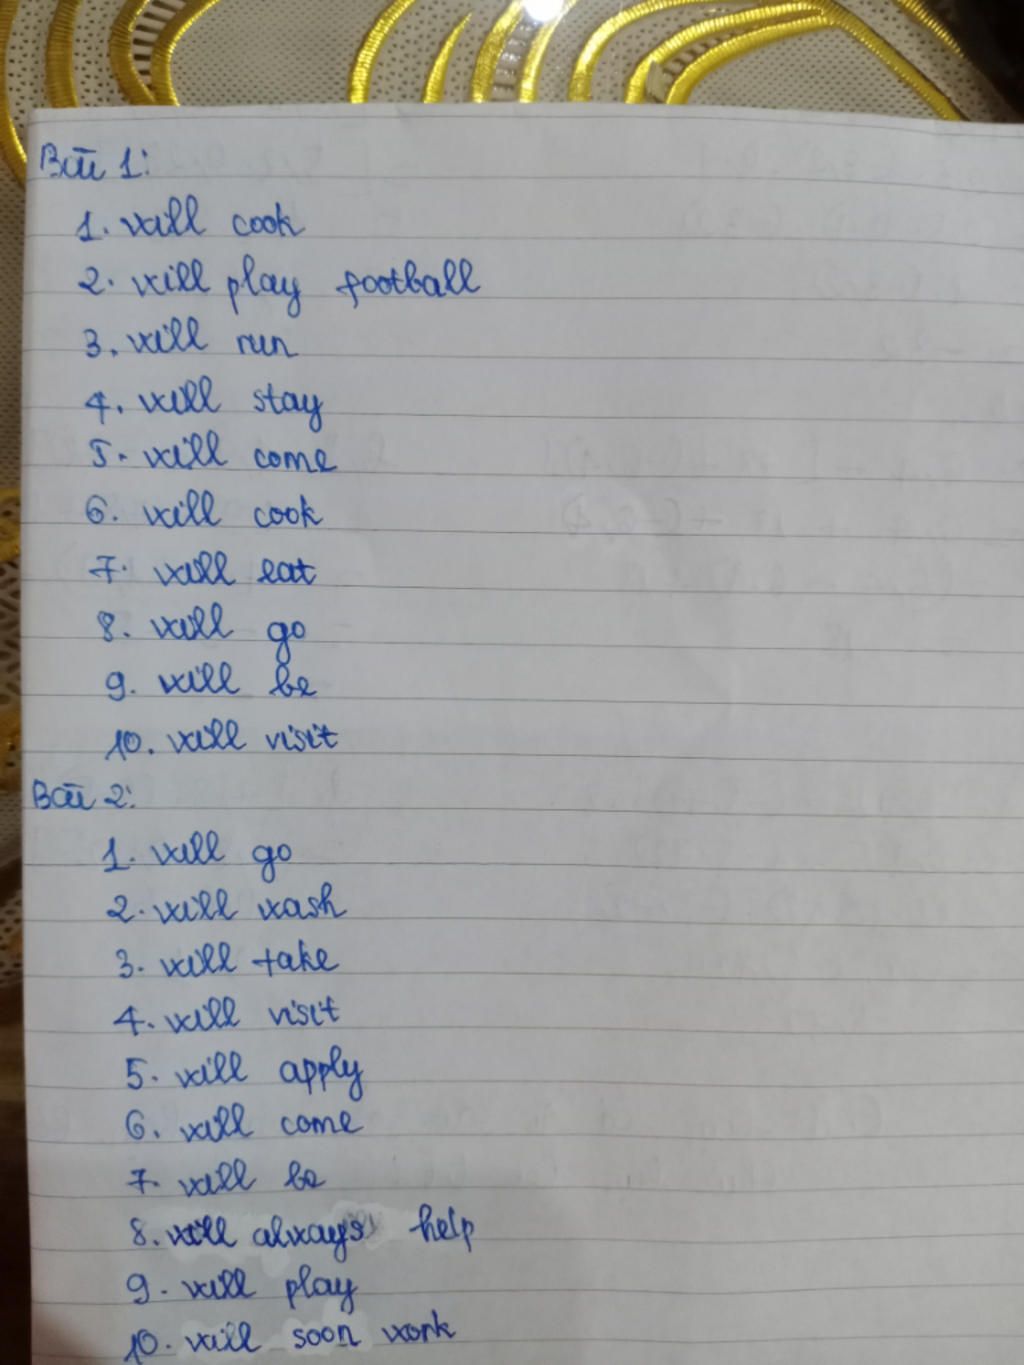 Bài 1:
1. will cook
2. will play football
3. will run
4. will stay
5. will come
6. will cook
7. will eat
8. will go
9. will be
10. will visit
Bài 2:
1. will go
2. will wash
3. will take
4. will visit
5. will apply
6. will come
7. will be
8. will always help
9. will play
10. will soon work